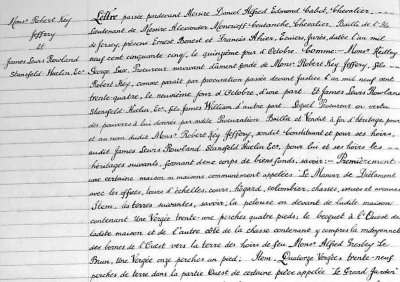 Monsr Robert Key
Jeffory
et
James Lewis Rowland
Stansfeld-Huelin, Ecr.
Lettre passée pardevant Messire Daniel Alfred Edmond Cabot, Chevalier
Lieutenant de Messire Alexander Moncrieff Coutanche, Chevalier, Baille de l'Ile
de Jersey, présens Ernest Benest et Francis Ahier, Ecuiers, jurés, datée l'an mil
neuf cent cinquante cinq, le quinzième jour d'Octobre. Comme: Monsr
George Procureur suivant dûment fondé de Monsr Robert Key Jeffory, fils
Robert Key, comme paraît par procuration passée devant Justice l'an mil neuf cent
trente quatre, le neuvième jour d'Octobre, d'une part. Et James Lewis Rowland
Stansfeld-Huelin, Ecr., fils James William d'autre part. Lequel Procureur en vertu
des pouvoirs à lui donnés par ladite Procuration Baille et Vendit à fin d'héritage, pour
et au nom dudit Monsr Robert Key Jeffory, sondit Constituant et pour ses hoirs,
audit James Lewis Rowland Stansfeld Huelin Ecr. pour lui et ses hoirs les
héritages suivants, formant deux corps de biens fonds, savoir:- Premièrement
une certaine maison ou maisons communément appelées "Le Manoir de Déléament
avec les offices, tours d'échelles, cours, hagard, colombier, chasses, issues et avenues
Item, les terres suivantes, savoir; la pelouse en devant de ladite maison
contenant Une Vergée trente-une perches quatre pieds; le becquet à l'Ouest de
ladite maison et de l'autre côté de la chasse contenant y compris la mitoyenneté
des bornes de l'Ouest vers la terre des hoirs de feu Monsr Alfred Presley Le
Brun, Une Vergée onze perches un pied; Item, Quatorze Vergées trente-neuf
perches de terre dans la partie Ouest de certaine pièce appelée "Le Grand Jardin"